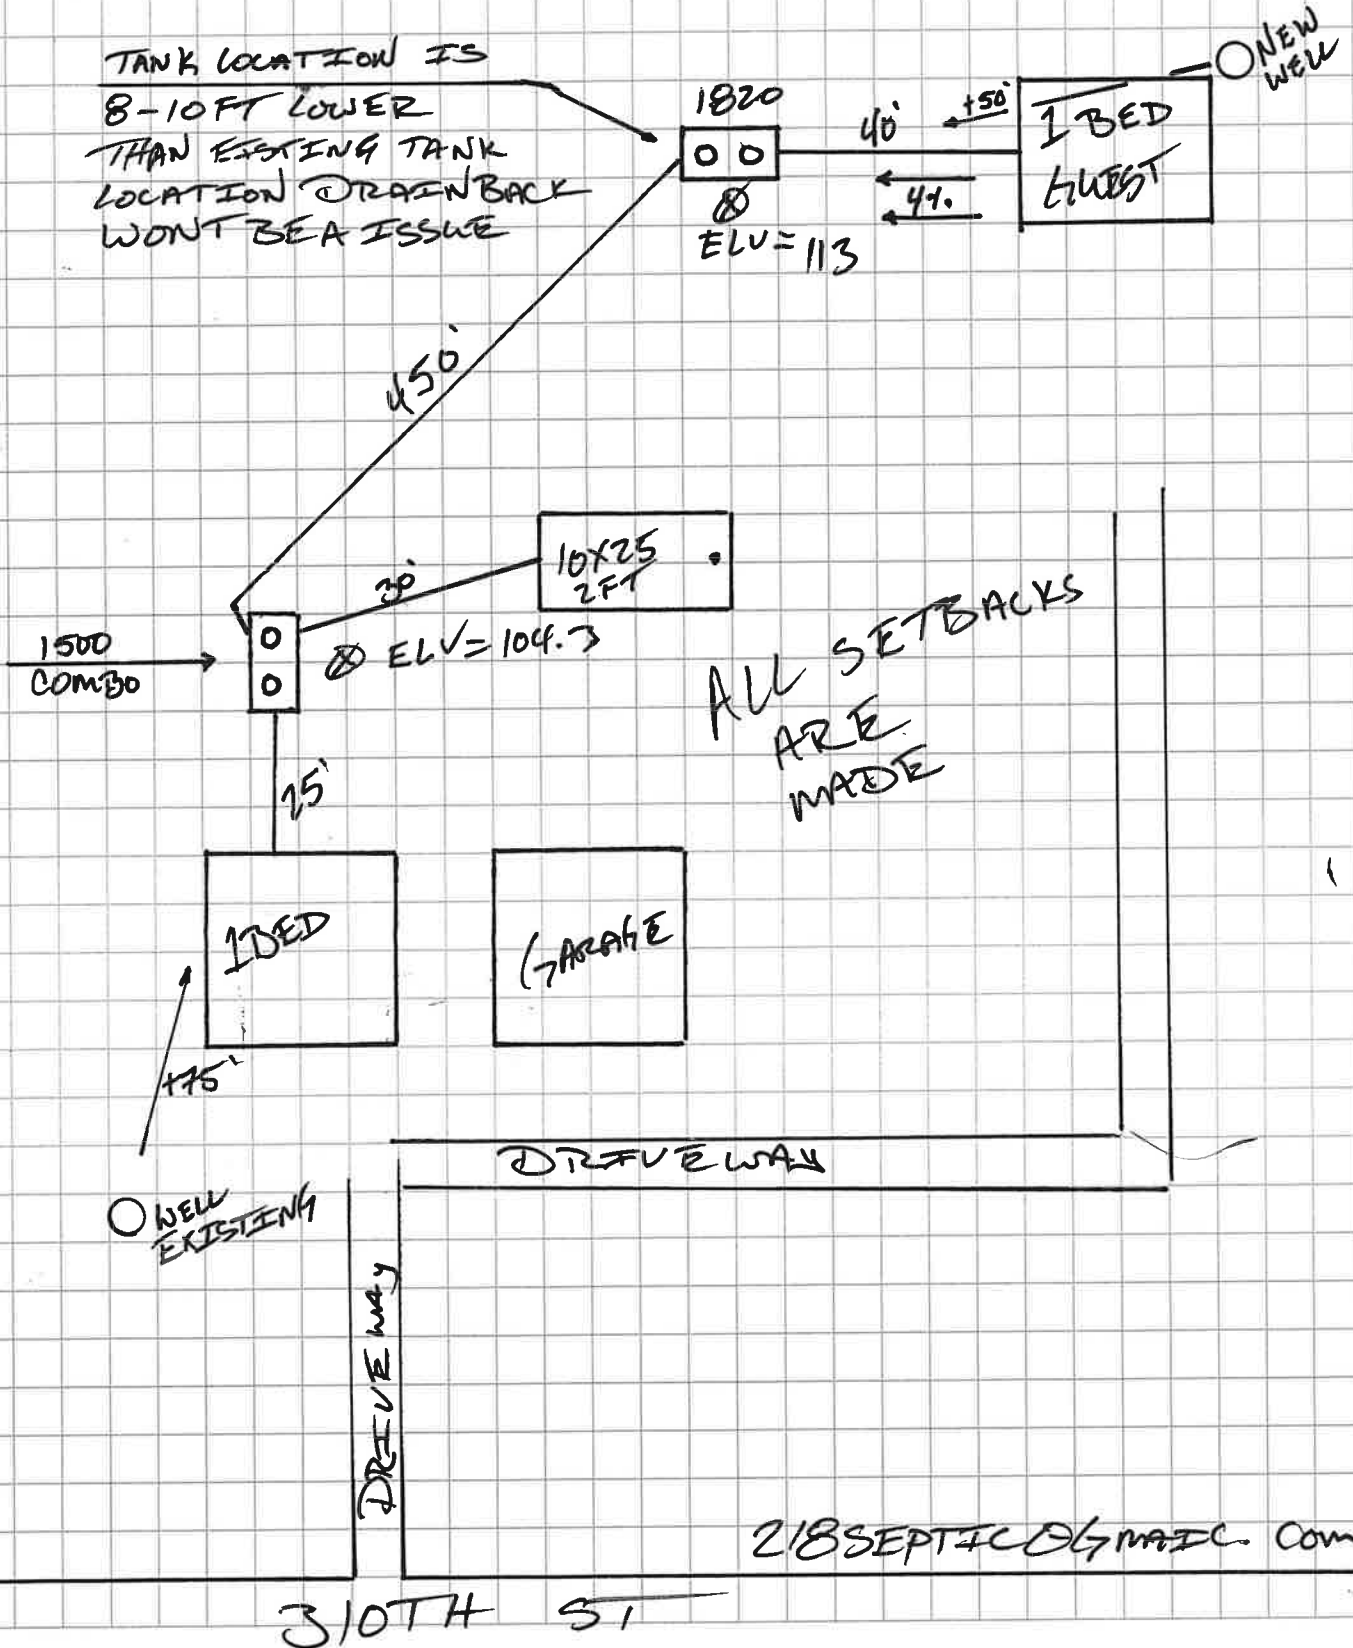 TANK LOCATION IS
8-10 FT LOWER
THAN EISTING TANK
LOCATION DRAINBACK
WONT BE A ISSUE
1820
ELV = 113
40'
+50'
4%
1 BED
GUEST
NEW
WELL
450'
30'
10X25
2FT
ELV = 104.3
1500
COMBO
25'
ALL SETBACKS
ARE
MADE
1 BED
GARAGE
+75'
WELL
EXISTING
DRIVEWAY
DRIVEWAY
218SEPTIC@GMAIL.COM
310TH ST